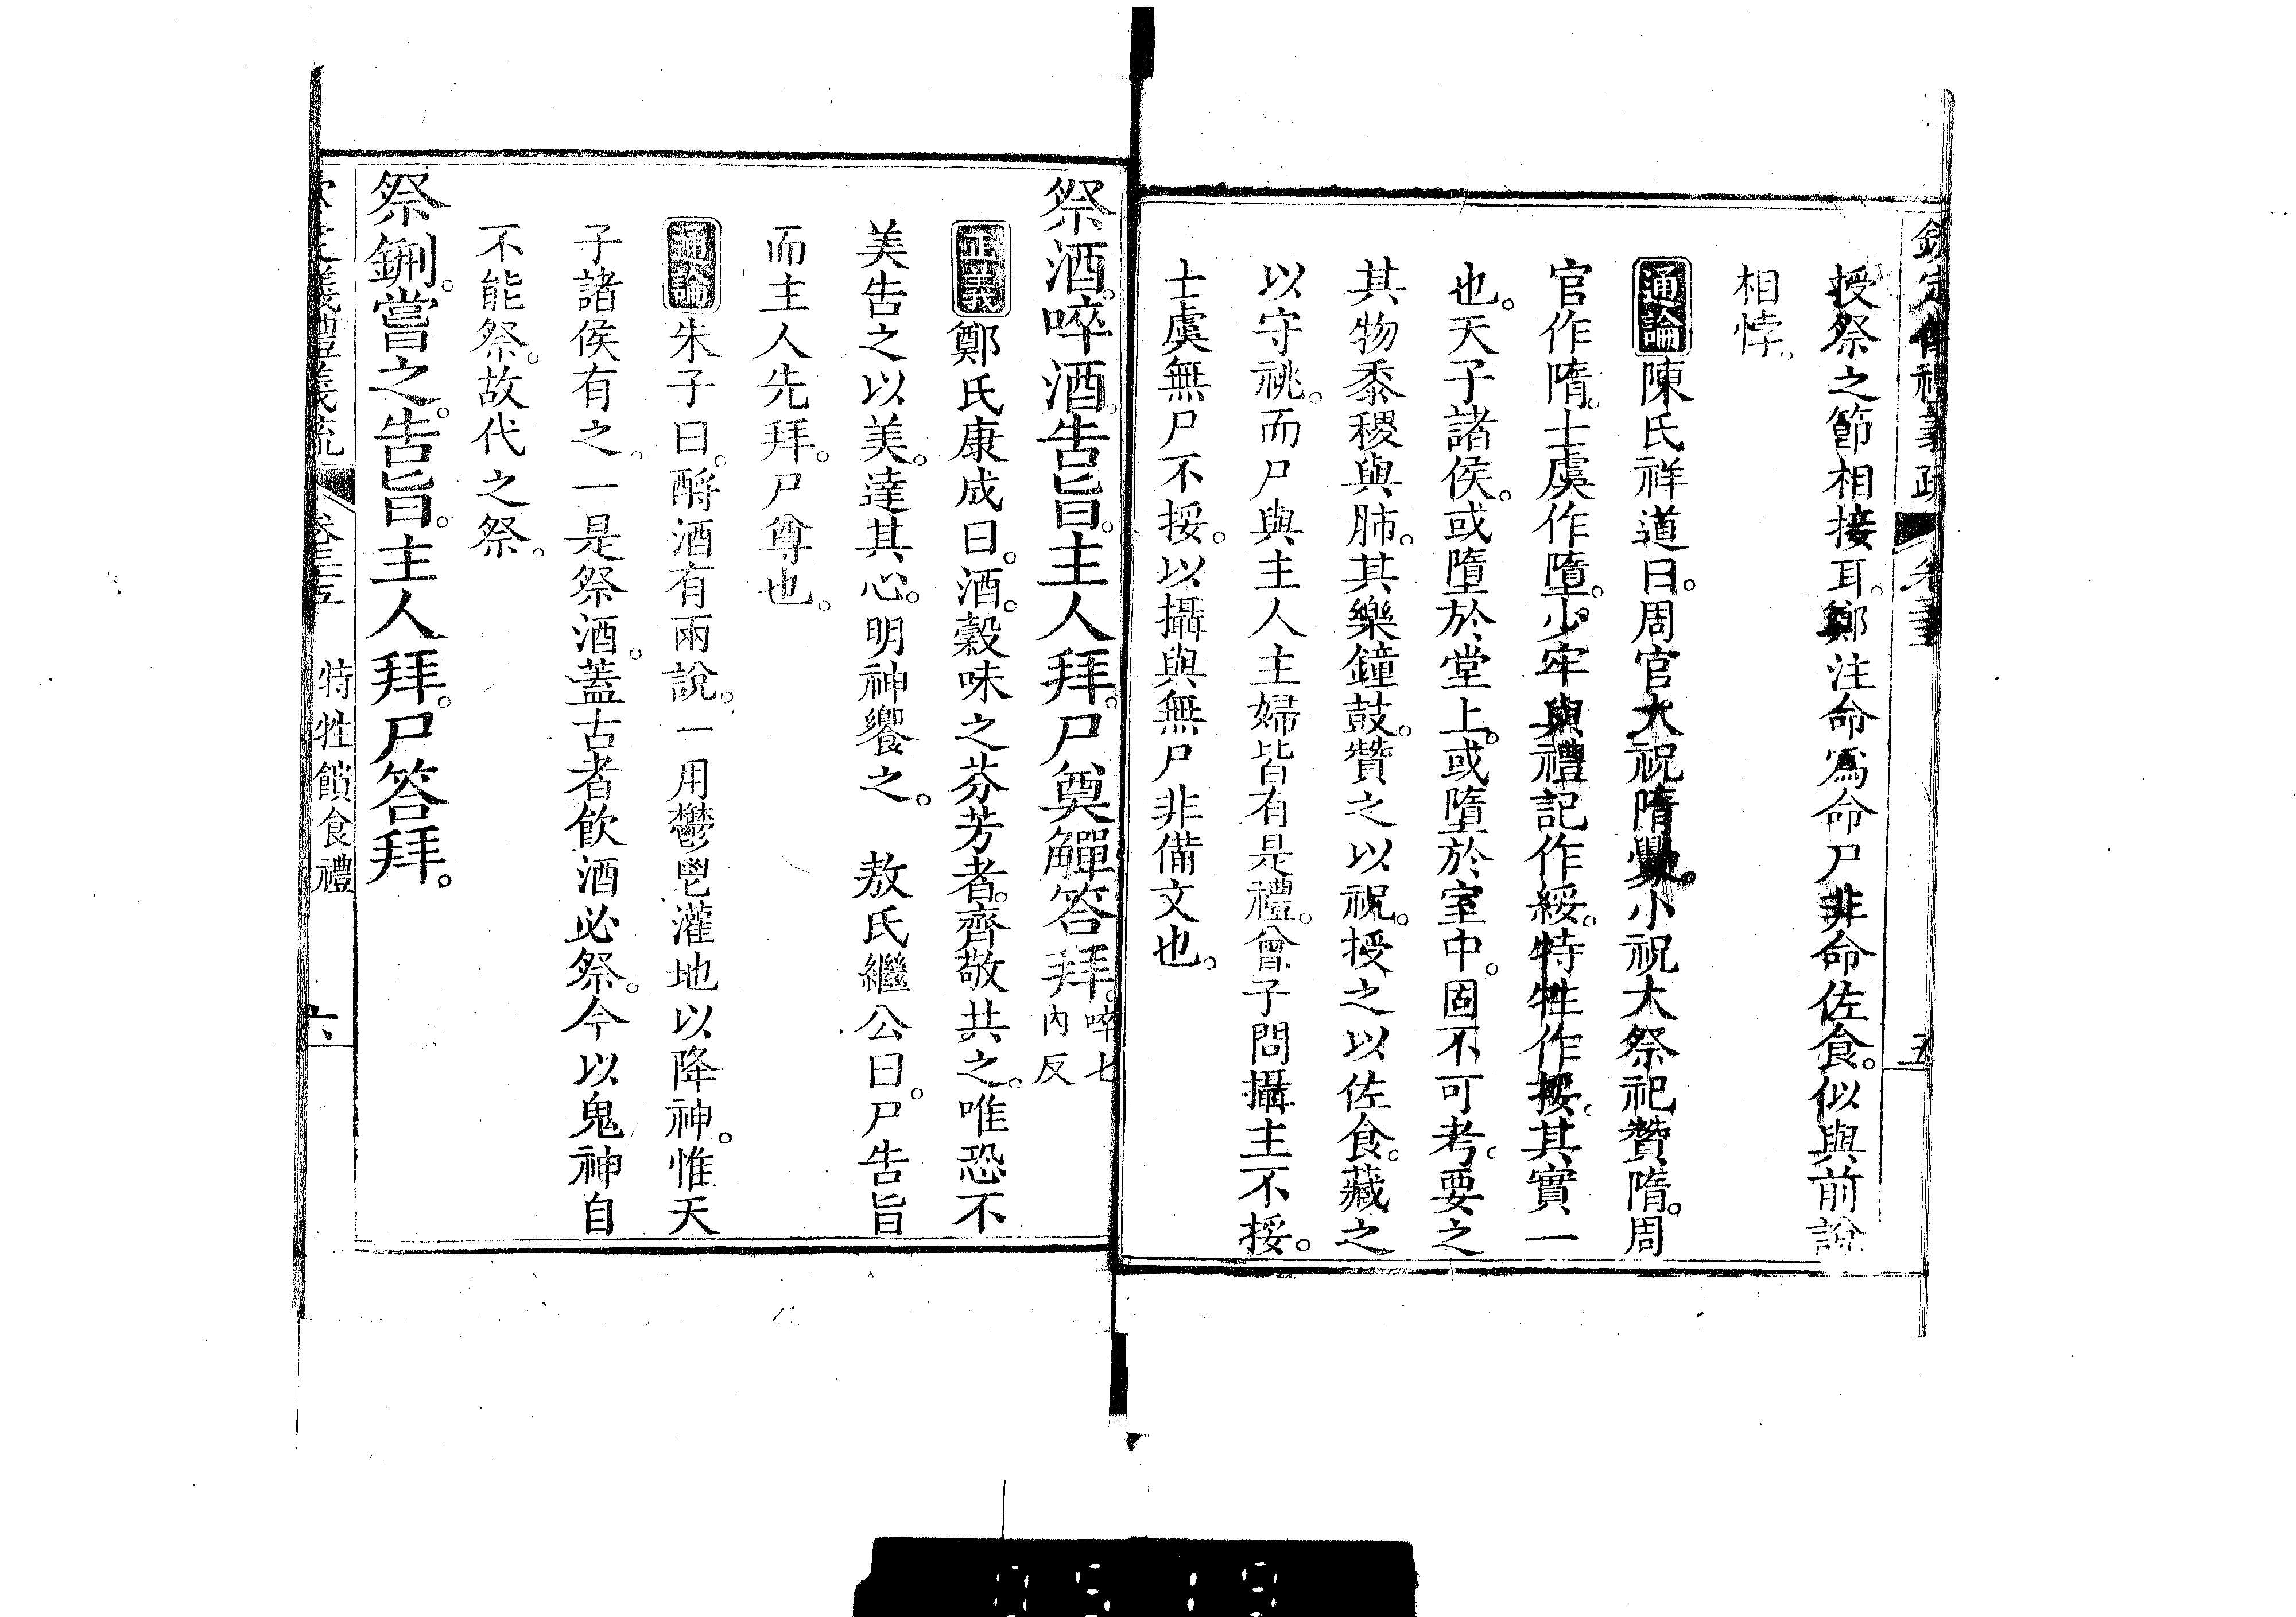 欽定儀禮義疏 卷三十五 五
授祭之節相接耳。鄭注命爲命尸非命佐食。似與前說
相悖。
通論陳氏祥道曰。周官大祝隋釁。小祝大祭祀贊隋。周
官作隋。士虞作墮。少牢與禮記作綏。特牲作挼。其實一
也。天子諸侯。或墮於堂上。或墮於室中。固不可考。要之
其物黍稷與肺。其樂鐘鼓。贊之以祝。授之以佐食。藏之
以守祧。而尸與主人主婦皆有是禮。曾子問攝主不挼。
士虞無尸不挼。以攝與無尸非備文也。
祭酒。啐酒。告旨。主人拜。尸奠觶答拜。啐七內反
正義鄭氏康成曰。酒。穀味之芬芳者。齊敬共之。唯恐不
美告之以美。達其心。明神饗之。 敖氏繼公曰。尸告旨
而主人先拜。尸尊也。
通論朱子曰。酹酒有兩說。一用鬱鬯灌地以降神。惟天
子諸侯有之。一是祭酒。蓋古者飲酒必祭。今以鬼神自
不能祭。故代之祭。
祭鉶。嘗之。告旨。主人拜。尸答拜。
欽定儀禮義疏 卷三十五 特牲饋食禮 六